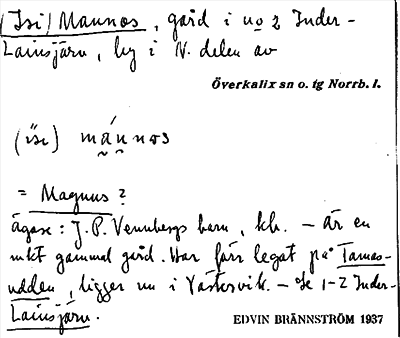 (Isi) Mannos, gård i no 2 Inder-
Lainsjärv, by i N. delen av
Överkalix sn o. tg Norrb. l.
(ısı) mánnos
= Magnus?
ägare: J. P. Vennbergs barn, kb. – Är en
mkt gammal gård. Har förr legat på Tamas-
udden, ligger nu i Västervik. – Se 1-2 Inder-
Lainsjärv.
EDVIN BRÄNNSTRÖM 1937